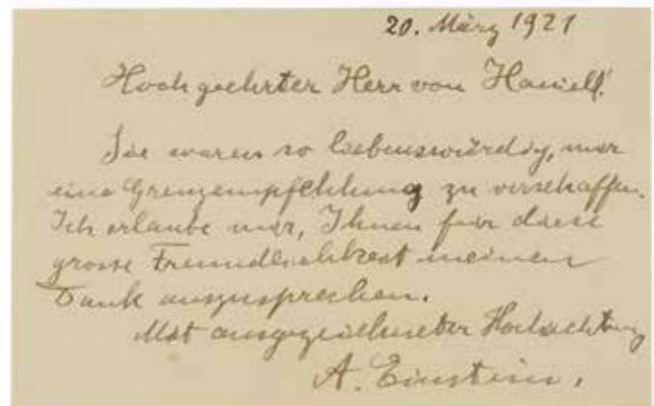 20. März 1921
Hochgeehrter Herr von Haniel!
Sie waren so liebenswürdig, mir
eine Grenzempfehlung zu verschaffen.
Ich erlaube mir, Ihnen für diese
grosse Freundlichkeit meinen
Dank auszusprechen.
Mit ausgezeichneter Hochachtung
A. Einstein.